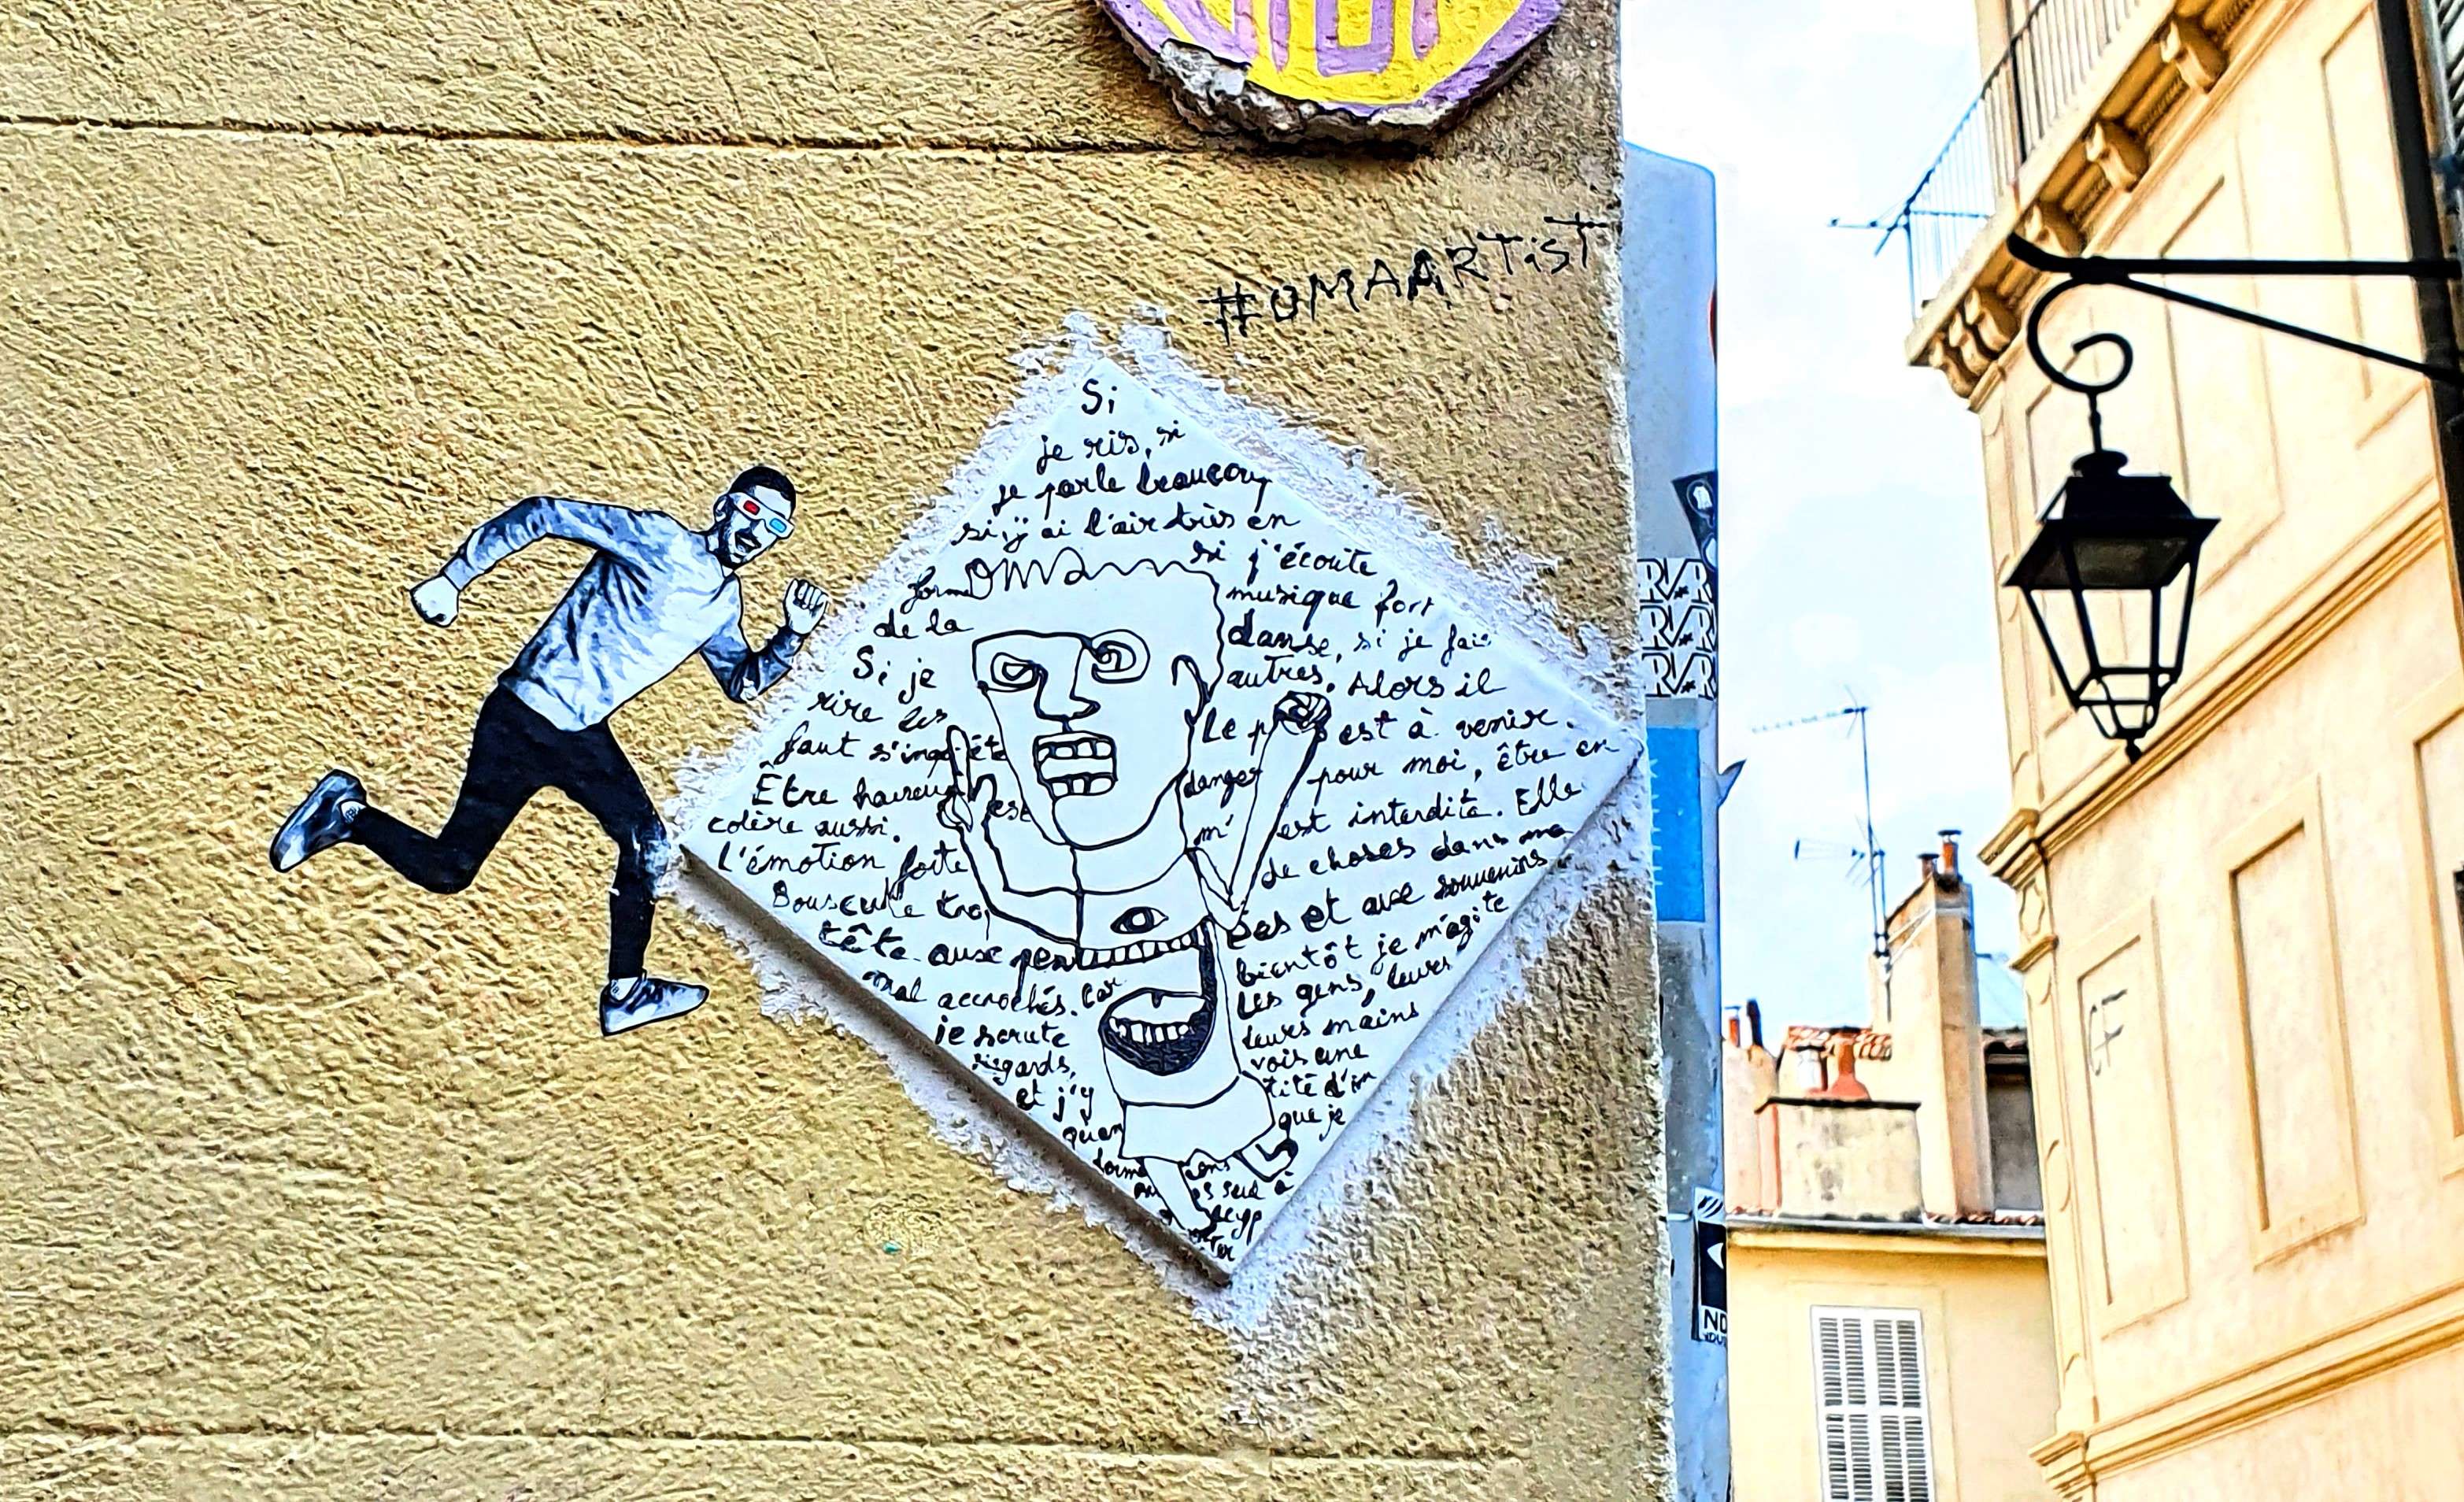 #OMAARTIST
Si
je ris, si
je parle beaucoup
si j'ai l'air très en
forme OMA si j'écoute
de la musique fort
Si je danse, si je fais
rire les autres. Alors il
faut s'inquiéter Le est à venir.
Être heureux est danger pour moi, être en
colère aussi. m' est interdite. Elle
L'émotion forte de choses dans ma
Bouscule trop et aux souvenirs
tête aux bientôt je m'agite
mal accrochés. Car Les gens, leurs
je scrute leurs mains
regards, vois une
et j'y tité d'in
quan que je
seul à
NO